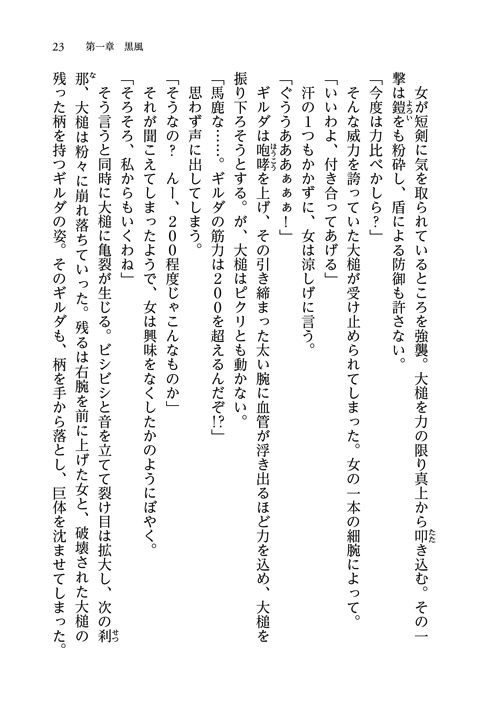 23　第一章　黒風
　女が短剣に気を取られているところを強襲。大槌を力の限り真上から叩き込む。その一
撃は鎧をも粉砕し、盾による防御も許さない。
「今度は力比べかしら？」
　そんな威力を誇っていた大槌が受け止められてしまった。女の一本の細腕によって。
「いいわよ、付き合ってあげる」
　汗の１つもかかずに、女は涼しげに言う。
「ぐううあああぁぁぁ！」
　ギルダは咆哮を上げ、その引き締まった太い腕に血管が浮き出るほど力を込め、大槌を
振り下ろそうとする。が、大槌はピクリとも動かない。
「馬鹿な……。ギルダの筋力は２００を超えるんだぞ!?」
　思わず声に出してしまう。
「そうなの？　んー、２００程度じゃこんなものか」
　それが聞こえてしまったようで、女は興味をなくしたかのようにぼやく。
「そろそろ、私からもいくわね」
　そう言うと同時に大槌に亀裂が生じる。ビシビシと音を立てて裂け目は拡大し、次の刹
那、大槌は粉々に崩れ落ちていった。残るは右腕を前に上げた女と、破壊された大槌の
残った柄を持つギルダの姿。そのギルダも、柄を手から落とし、巨体を沈ませてしまった。